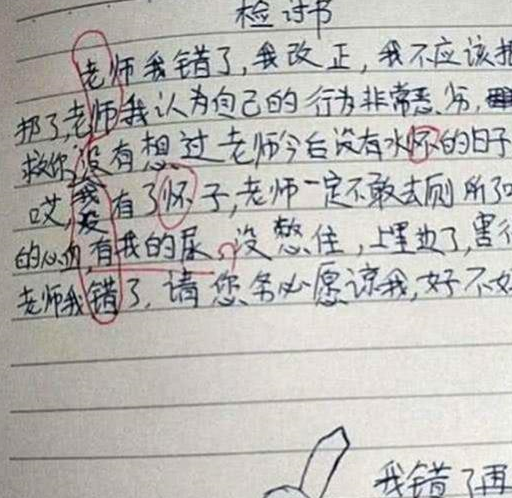 检讨书
老师我错了,我改正,我不应该把
邦了,老师我认为自己的行为非常恶劣,
救你,没有想过老师今后没有水怀的日子
哎,我发有了怀子,老师一定不敢去厕所了
的心血,有我的尿,没憋住,上里边了,害得
老师我错了,请您务必愿谅我,好不好
我错了再